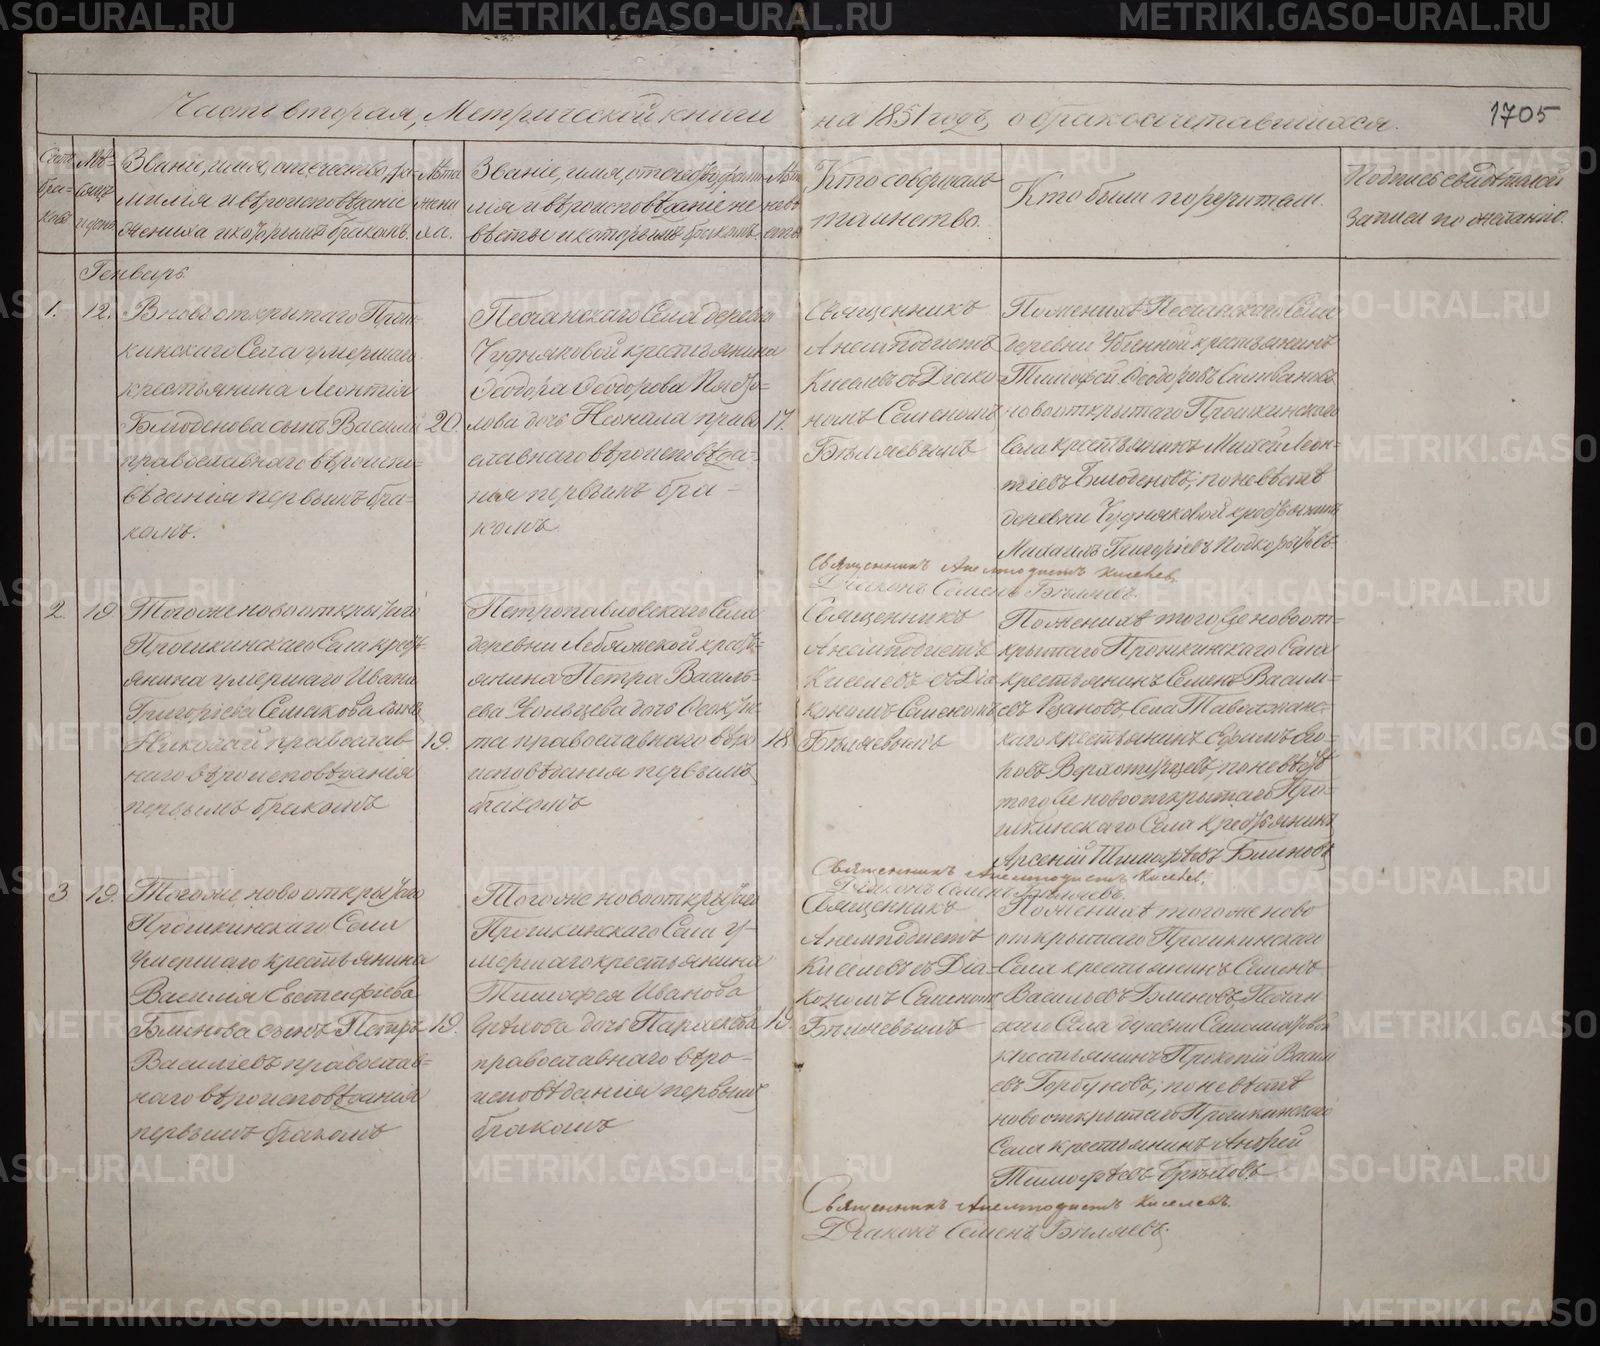 Часть вторая, Метрической книги на 1851 годъ, о бракосочетавшихся.
1705
Счетъ браковъ
Мѣсяцъ и день
Званіе, имя, отечество, фамилія и вѣроисповѣданіе жениха и которымъ бракомъ.
Лѣта жениха.
Званіе, имя, отечество, фамилія и вѣроисповѣданіе невѣсты и которымъ бракомъ.
Лѣта невѣсты
Кто совершалъ таинство.
Кто были поручители.
Подпись свидѣтелей записи по желанію.
Генварь
1.
12.
Вновь открытаго Прош-
кинскаго Села умершаго
крестьянина Леонтія
Блюденова сынъ Василій
православнаго вѣроиспо-
вѣданія первымъ бра-
комъ.
20.
Песчанскаго Села деревни
Чудняковой крестьянина
Ѳеодора Ѳеодорова
дочь Неонила право
славнаго вѣроисповѣда-
нія первымъ бра-
комъ
17.
Священникъ
Анемподистъ
Киселевъ съ Діако
номъ Семеномъ
Бѣляевымъ
По женихѣ Песчанскаго Села
деревни крестьянинъ
Тимофей Ѳеодоровъ Селивановъ
новооткрытаго Прошкинскаго
Села крестьянинъ Михей Леон-
тіевъ Блюденовъ; по невѣстѣ
деревни Чудняковой крестьянинъ
Михаилъ Григоріевъ Подкорытовъ
Священникъ Анемподистъ Киселевъ
Діаконъ Семенъ Бѣляевъ.
2.
19
Тогоже новооткрытаго
Прошкинскаго Села крестъ-
янина умершаго Ивана
Григоріева Семакова сынъ
Николай православ
наго вѣроисповѣданія
первымъ бракомъ
19.
Петропавловскаго Села
деревни Лебяжской кресть-
янина Петра Василь-
ева дочь
православнаго вѣро
исповѣданія первымъ
бракомъ
18
Священникъ
Анемподистъ
Киселевъ съ Діа
кономъ Семеномъ
Бѣляевымъ
По женихѣ того же новоот-
крытаго Прошкинскаго Села
крестьянинъ Семенъ Василь-
евъ Рязановъ, Села Таволжанс-
каго крестьянинъ
Верхотурцевъ, по невѣстѣ
того же новооткрытаго Про-
шкинскаго Села крестьянинъ
Арсеній Тимофѣевъ Блиновъ
Священникъ Анемподистъ Киселевъ,
Діаконъ Семенъ Бѣляевъ.
3
19.
Тогоже новооткрытаго
Прошкинскаго Села
умершаго крестьянина
Василія Евстафіева
Блинова сынъ Петръ
Василіевъ православ-
наго вѣроисповѣданія
первымъ бракомъ
19.
Тогоже новооткрытаго
Прошкинскаго Села у-
мершаго крестьянина
Тимофея Иванова
дочь
православнаго вѣро-
исповѣданія первымъ
бракомъ
19.
Священникъ
Анемподистъ
Киселевъ съ Діа-
кономъ Семеномъ
Бѣляевымъ
По женихѣ того же ново
открытаго Прошкинскаго
Села крестьянинъ Семенъ
Васильевъ Блиновъ, Песчан
скаго Села деревни
крестьянинъ Прокопій Васил
евъ Горбуновъ; по невѣстѣ
новооткрытаго Прошкинскаго
Села крестьянинъ Андрей
Тимофѣевъ
Священникъ Анемподистъ Киселевъ.
Діаконъ Семенъ Бѣляевъ.
METRIKI.GASO-URAL.RU